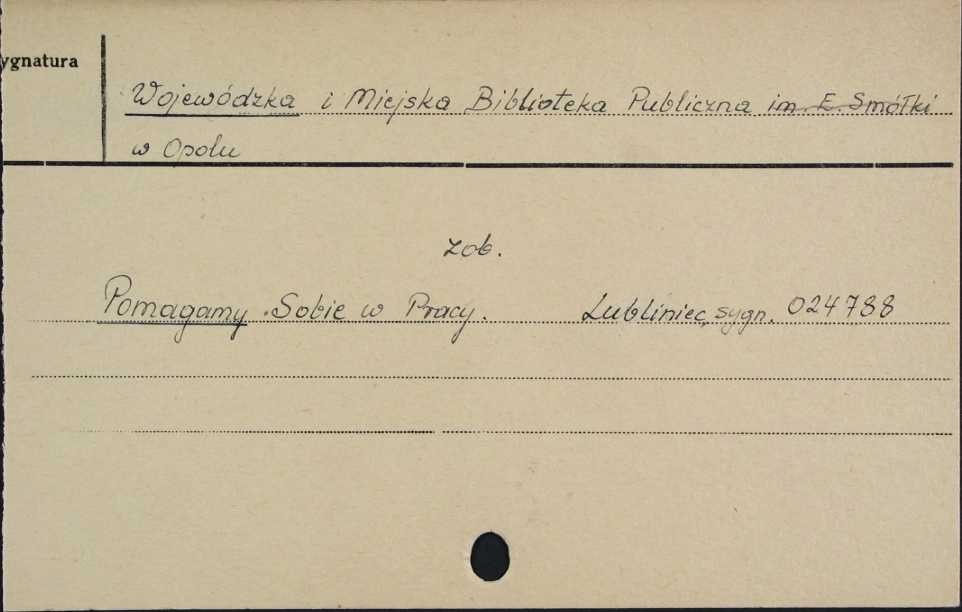 ygnatura
Wojewódzka i Miejska Biblioteka Publiczna im. E. Smółki
w Opolu
zob.
Pomagamy Sobie w Pracy. Lubliniec, sygn. 024788